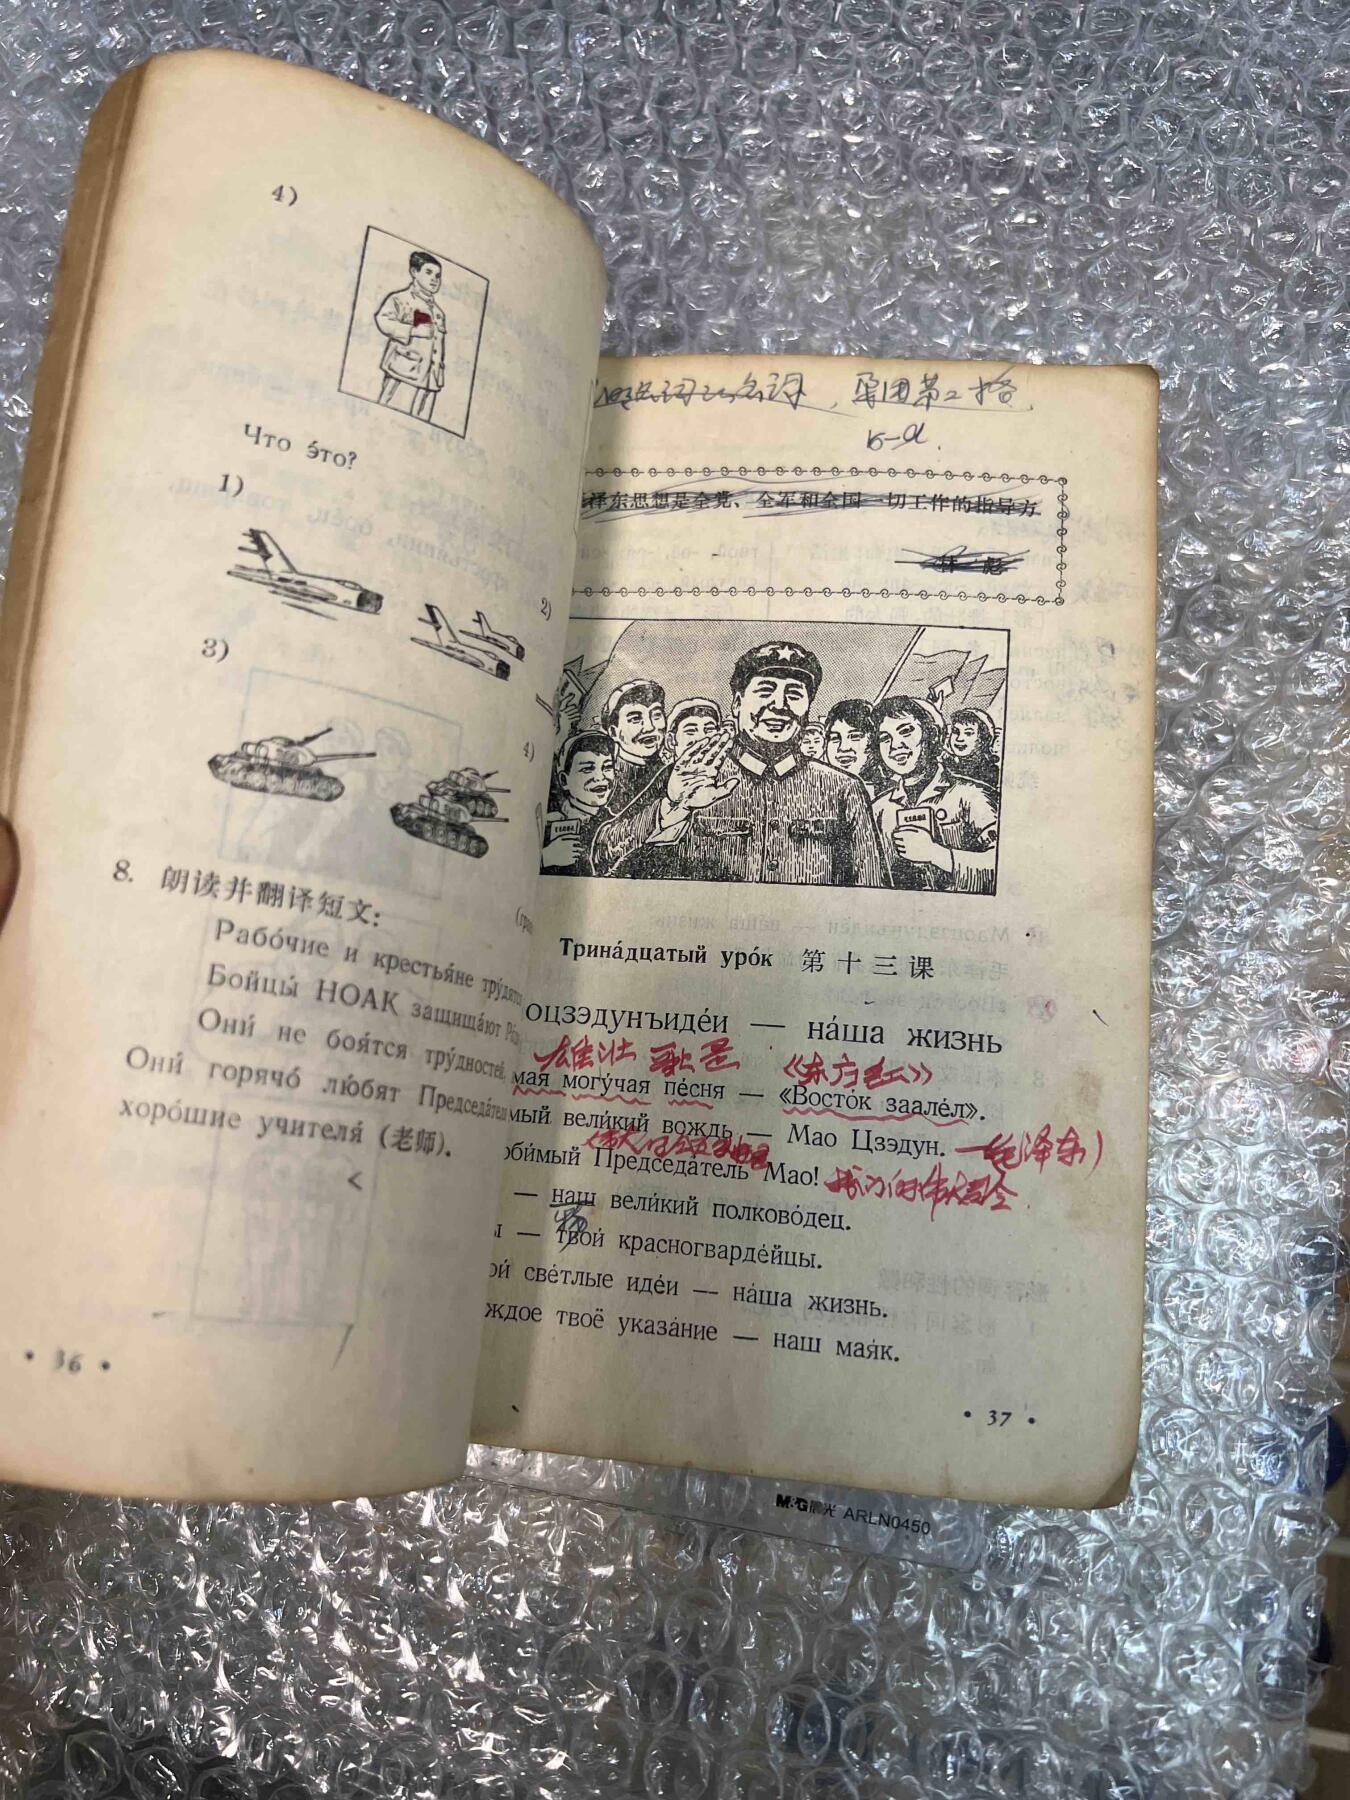 4)
Что э́то?
1)
2)
3)
4)
8. 朗读并翻译短文:
Рабо́чие и крестья́не тру́дятся
Бойцы́ НОАК защища́ют
Они́ не боя́тся тру́дностей,
Они́ горячо́ лю́бят Председа́тел
хоро́шие учителя́ (老师).
• 36 •
名词, 单因第二格
ь-я.
泽东思想是全党、全军和全国一切工作的指导方
林 彪
Трина́дцатый уро́к 第十三课
оцзэдунъиде́и — на́ша жизнь
雄壮 歌是 《东方红》
мая могу́чая пе́сня — «Восто́к заале́л».
мый вели́кий вождь — Мао Цзэдун. —(毛泽东)
оби́мый Председа́тель Мао! 我们的伟大司令
— наш вели́кий полково́дец.
ы — твои́ красногварде́йцы.
ои́ све́тлые иде́и — на́ша жизнь.
ждое твоё указа́ние — наш мая́к.
• 37 •
M&G晨光 ARLN0450